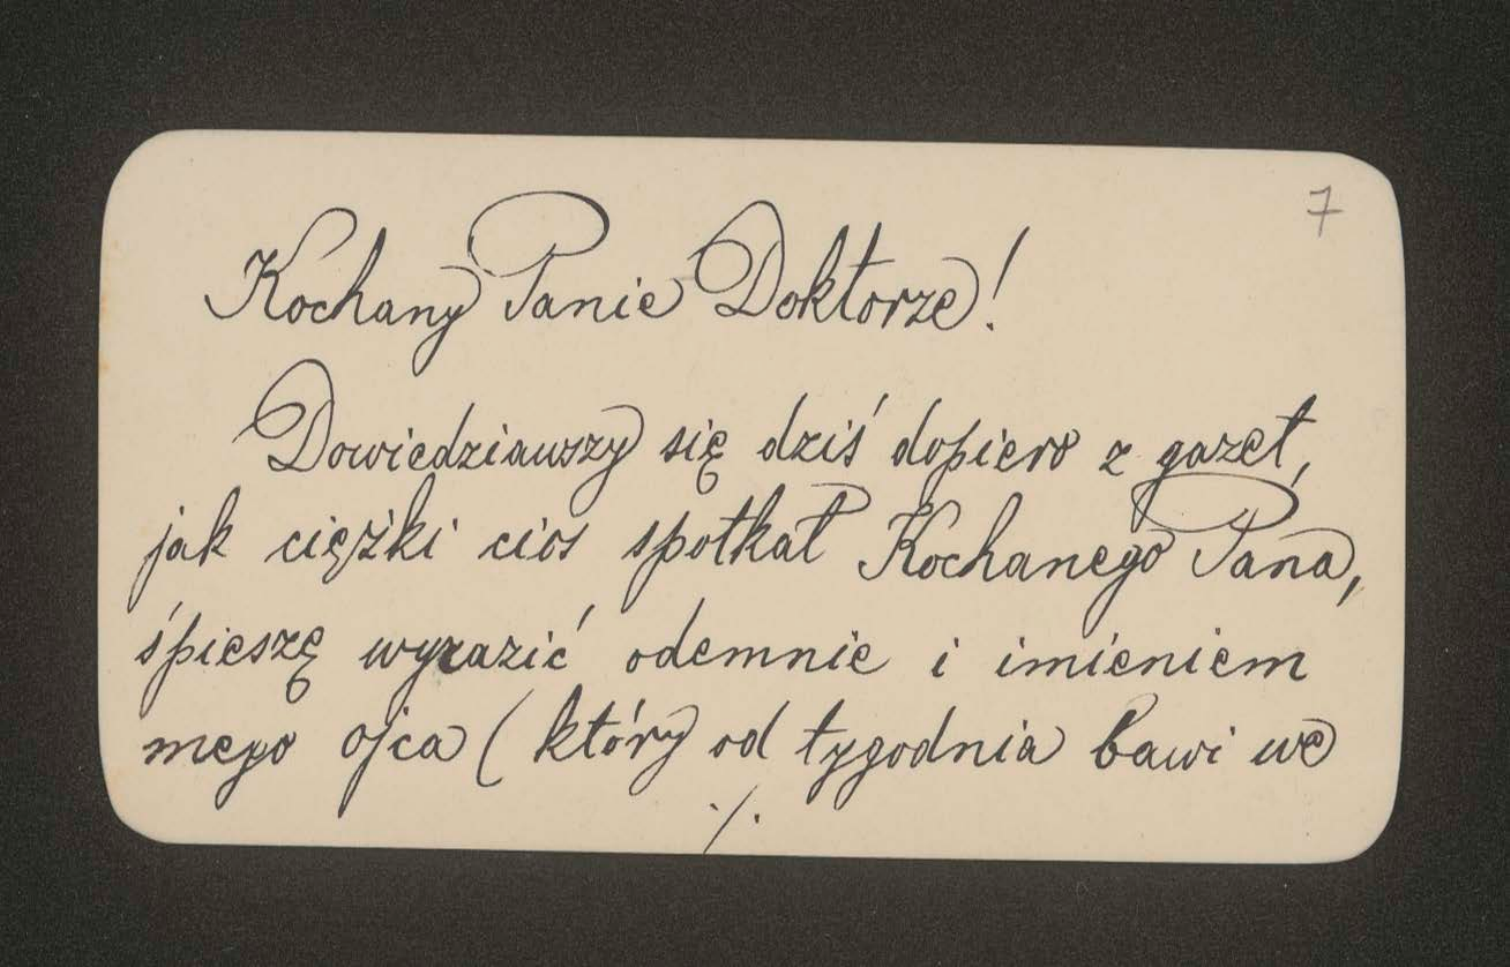 7
Kochany Panie Doktorze!
Dowiedziawszy się dziś dopiero z gazet,
jak ciężki cios spotkał Kochanego Pana,
śpieszę wyrazić odemnie i imieniem
mego ojca (który od tygodnia bawi we
./.